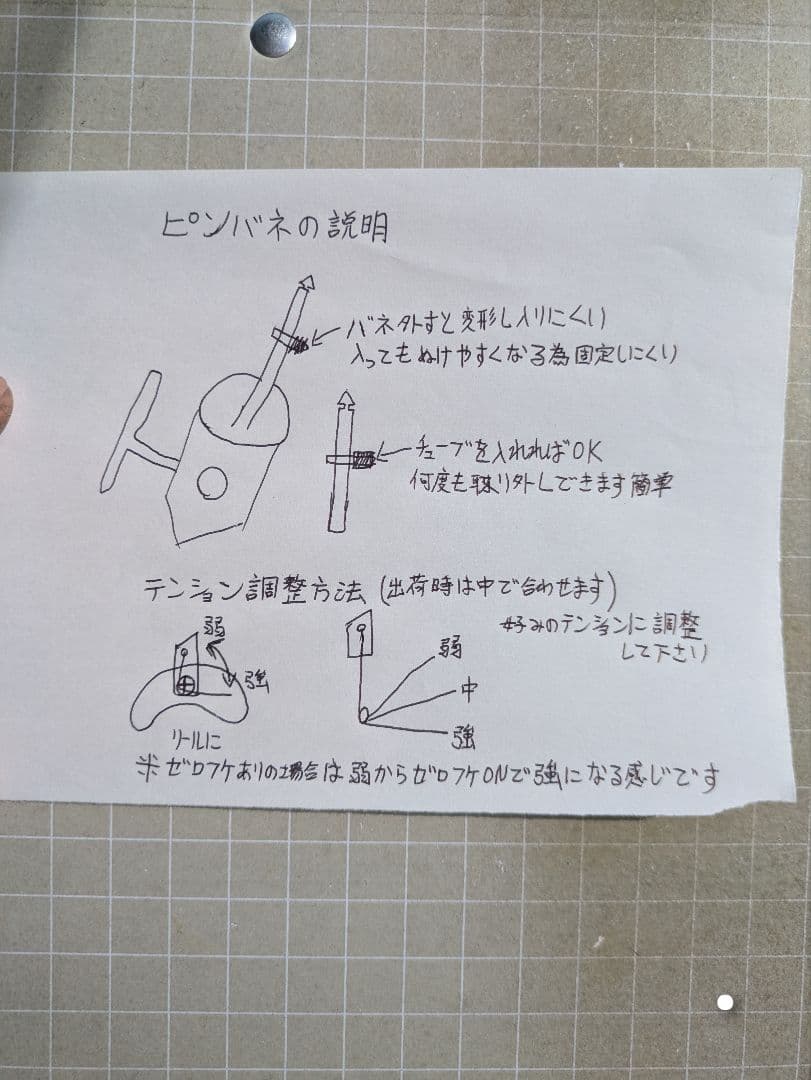 ピンバネの説明
バネ外すと変形し入りにくい
入ってもぬけやすくなる為固定しにくい
チューブを入れればOK
何度も取り外しできます簡単
テンション調整方法(出荷時は中で合わせます)
好みのテンションに調整
して下さい
弱
強
リールに
弱
中
強
※ゼロフケありの場合は弱からゼロフケONで強になる感じです